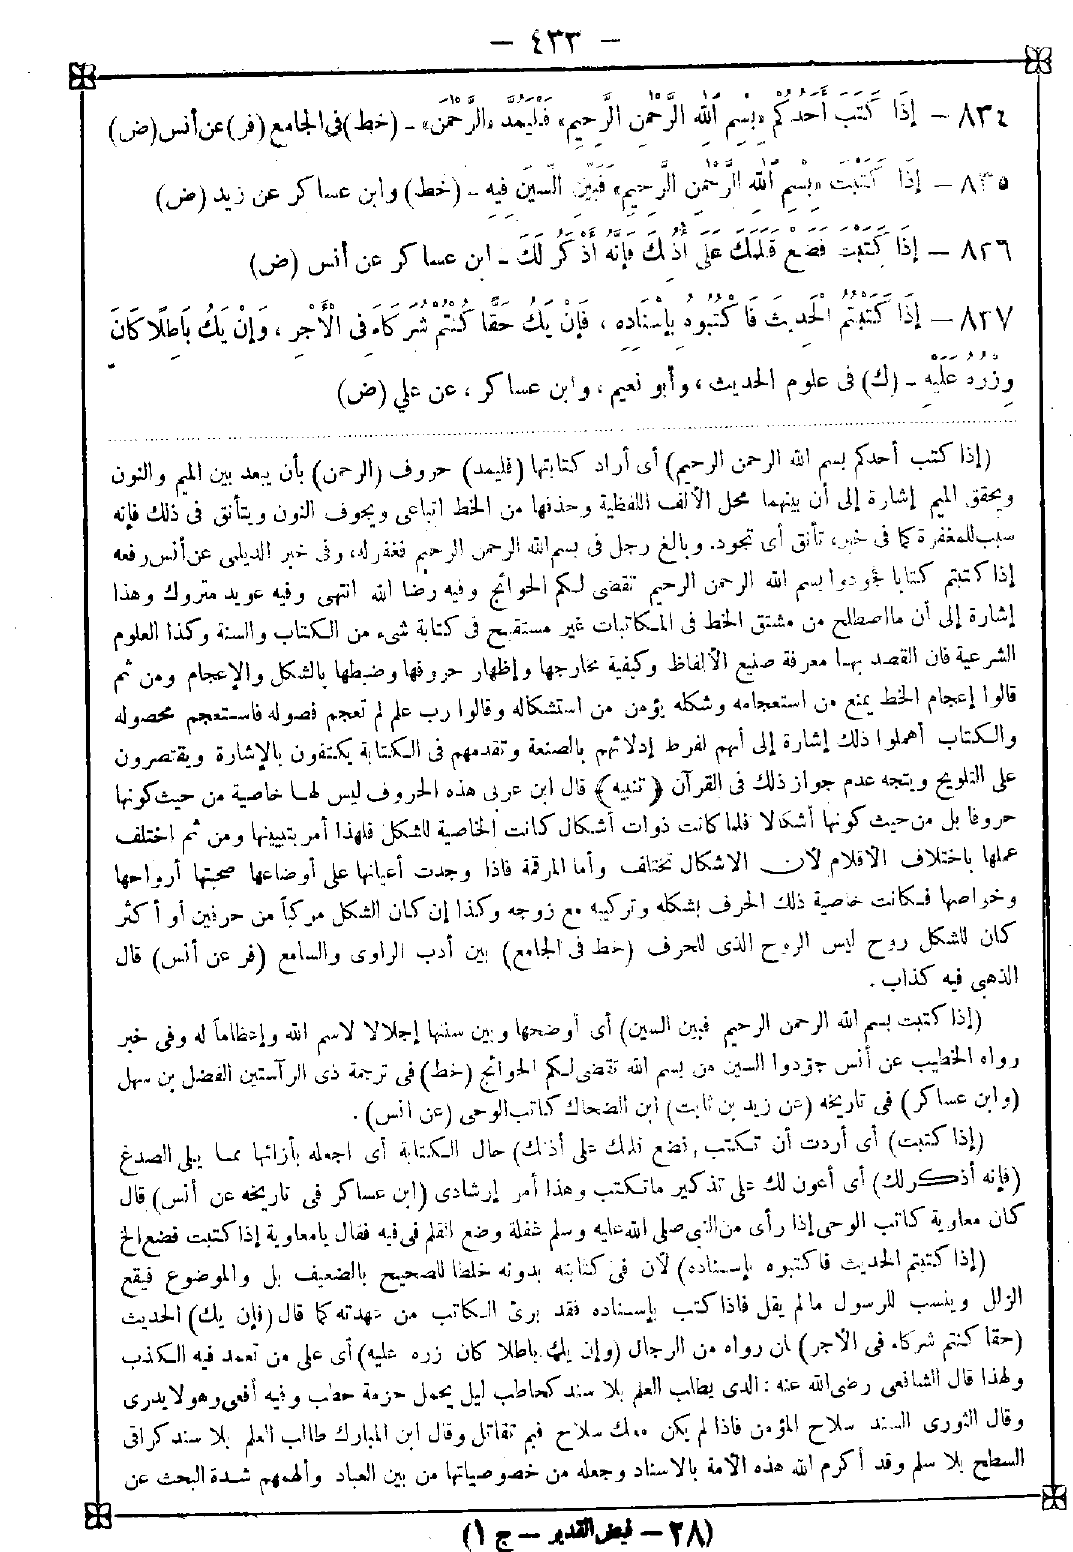 — ٤٣٣ —
٨٣٤ — إِذَا كَتَبَ أَحَدُكُمْ «بِسْمِ اللّٰهِ الرَّحْمٰنِ الرَّحِيمِ» فَلْيَمُدَّ «الرَّحْمٰنَ» ـ (خط) فى الجامع (فر) عن أنس (ض)
٨٣٥ — إِذَا كَتَبْتَ «بِسْمِ اللّٰهِ الرَّحْمٰنِ الرَّحِيمِ» فَبَيِّنِ السِّينَ فِيهِ ـ (خط) وابن عساكر عن زيد (ض)
٨٢٦ — إِذَا كَتَبْتَ فَضَعْ قَلَمَكَ عَلَى أُذُنِكَ فَإِنَّهُ أَذْكَرُ لَكَ ـ ابن عساكر عن أنس (ض)
٨٢٧ — إِذَا كَتَبْتُمُ الْحَدِيثَ فَاكْتُبُوهُ بِإِسْنَادِهِ ، فَإِنْ يَكُ حَقًّا كُنْتُمْ شُرَكَاءَ فِى الْأَجْرِ ، وَإِنْ يَكُ بَاطِلًا كَانَ
وِزْرُهُ عَلَيْهِ ـ (ك) فى علوم الحديث ، وأبو نعيم ، وابن عساكر ، عن علي (ض)
(إذا كتب أحدكم بسم الله الرحمن الرحيم) أى أراد كتابتها (فليمد) حروف (الرحمن) بأن يمد بين الميم والنون
ويحقق الميم إشارة إلى أن بينهما محل الألف اللفظية وحذفها من الخط اتباعى ويجوف النون ويتأنق فى ذلك فإنه
سبب للمغفرة كما فى خبر، تأنق أى تجود. وبالغ رجل فى بسم الله الرحمن الرحيم فغفر له، وفى خبر الديلمى عن أنس رفعه
إذا كتبتم كتابا فجودوا بسم الله الرحمن الرحيم تقضى لكم الحوائج وفيه رضا الله انتهى وفيه عويد متروك وهذا
إشارة إلى أن ما اصطلح من مشتق الخط فى المكاتبات غير مستقبح فى كتابة شىء من الكتاب والسنة وكذا العلوم
الشرعية فان القصد بها معرفة صنيع الألفاظ وكيفية مخارجها وإظهار حروفها وضبطها بالشكل والإعجام ومن ثم
قالوا إعجام الخط يمنع من استعجامه وشكله يؤمن من استشكاله وقالوا رب علم لم تعجم فصوله فاستعجم محصوله
والكتاب أهملوا ذلك إشارة إلى أنهم لفرط إدلائهم بالصنعة وتقدمهم فى الكتابة يكتفون بالإشارة ويقتصرون
على التلويح ويتجه عدم جواز ذلك فى القرآن ﴿ تنبيه ﴾ قال ابن عربى هذه الحروف ليس لها خاصية من حيث كونها
حروفا بل من حيث كونها أشكالا فلما كانت ذوات أشكال كانت الخاصية للشكل فلهذا أمر بتبيينها ومن ثم اختلف
عملها باختلاف الأقلام لأن الاشكال تختلف وأما المرقمة فاذا وجدت أعيانها على أوضاعها صحبتها أرواحها
وخواصها فكانت خاصية ذلك الحرف بشكله وتركيبه مع روحه وكذا إن كان الشكل مركباً من حرفين أو أكثر
كان للشكل روح ليس الروح الذى للحرف (خط فى الجامع) بين أدب الراوى والسامع (فر عن أنس) قال
الذهبي فيه كذاب .
(إذا كتبت بسم الله الرحمن الرحيم فبين السين) أى أوضحها وبين سننها إجلالا لاسم الله وإعظاماً له وفى خبر
رواه الخطيب عن أنس جوّدوا السين من بسم الله تقضى لكم الحوائج (خط) فى ترجمة ذى الرآستين الفضل بن سهل
(وابن عساكر) فى تاريخه (عن زيد بن ثابت) ابن الضحاك كاتب الوحى (عن انس) .
(إذا كتبت) أى أردت أن تكتب (فضع قلمك على أذنك) حال الكتابة أى اجعله بأزائها مما يلى الصدغ
(فإنه أذكر لك) أى أعون لك على تذكير ما تكتب وهذا أمر إرشادى (ابن عساكر فى تاريخه عن أنس) قال
كان معاوية كاتب الوحى إذا رأى من النبى صلى الله عليه وسلم غفلة وضع القلم فى فيه فقال يا معاوية إذا كتبت فضع الخ
(إذا كتبتم الحديث فاكتبوه بإسناده) لأن فى كتابته بدونه خلطا للصحيح بالضعيف بل والموضوع فيقع
الزلل وينسب للرسول ما لم يقل فاذا كتب بإسناده فقد برئ الكاتب من عهدته كما قال (فإن يك) الحديث
(حقا كنتم شركاء فى الأجر) لمن رواه من الرجال (وإن يك باطلا كان وزره عليه) أى على من تعمد فيه الكذب
ولهذا قال الشافعى رضى الله عنه : الذى يطلب العلم بلا سند كحاطب ليل يحمل حزمة حطب وفيه أفعى وهو لا يدرى
وقال الثورى السند سلاح المؤمن فاذا لم يكن معك سلاح فبم تقاتل وقال ابن المبارك طالب العلم بلا سند كراقى
السطح بلا سلم وقد أكرم الله هذه الأمة بالاسناد وجعله من خصوصياتها من بين العباد وألهمهم شدة البحث عن
(٢٨ — فيض القدير — ج ١)